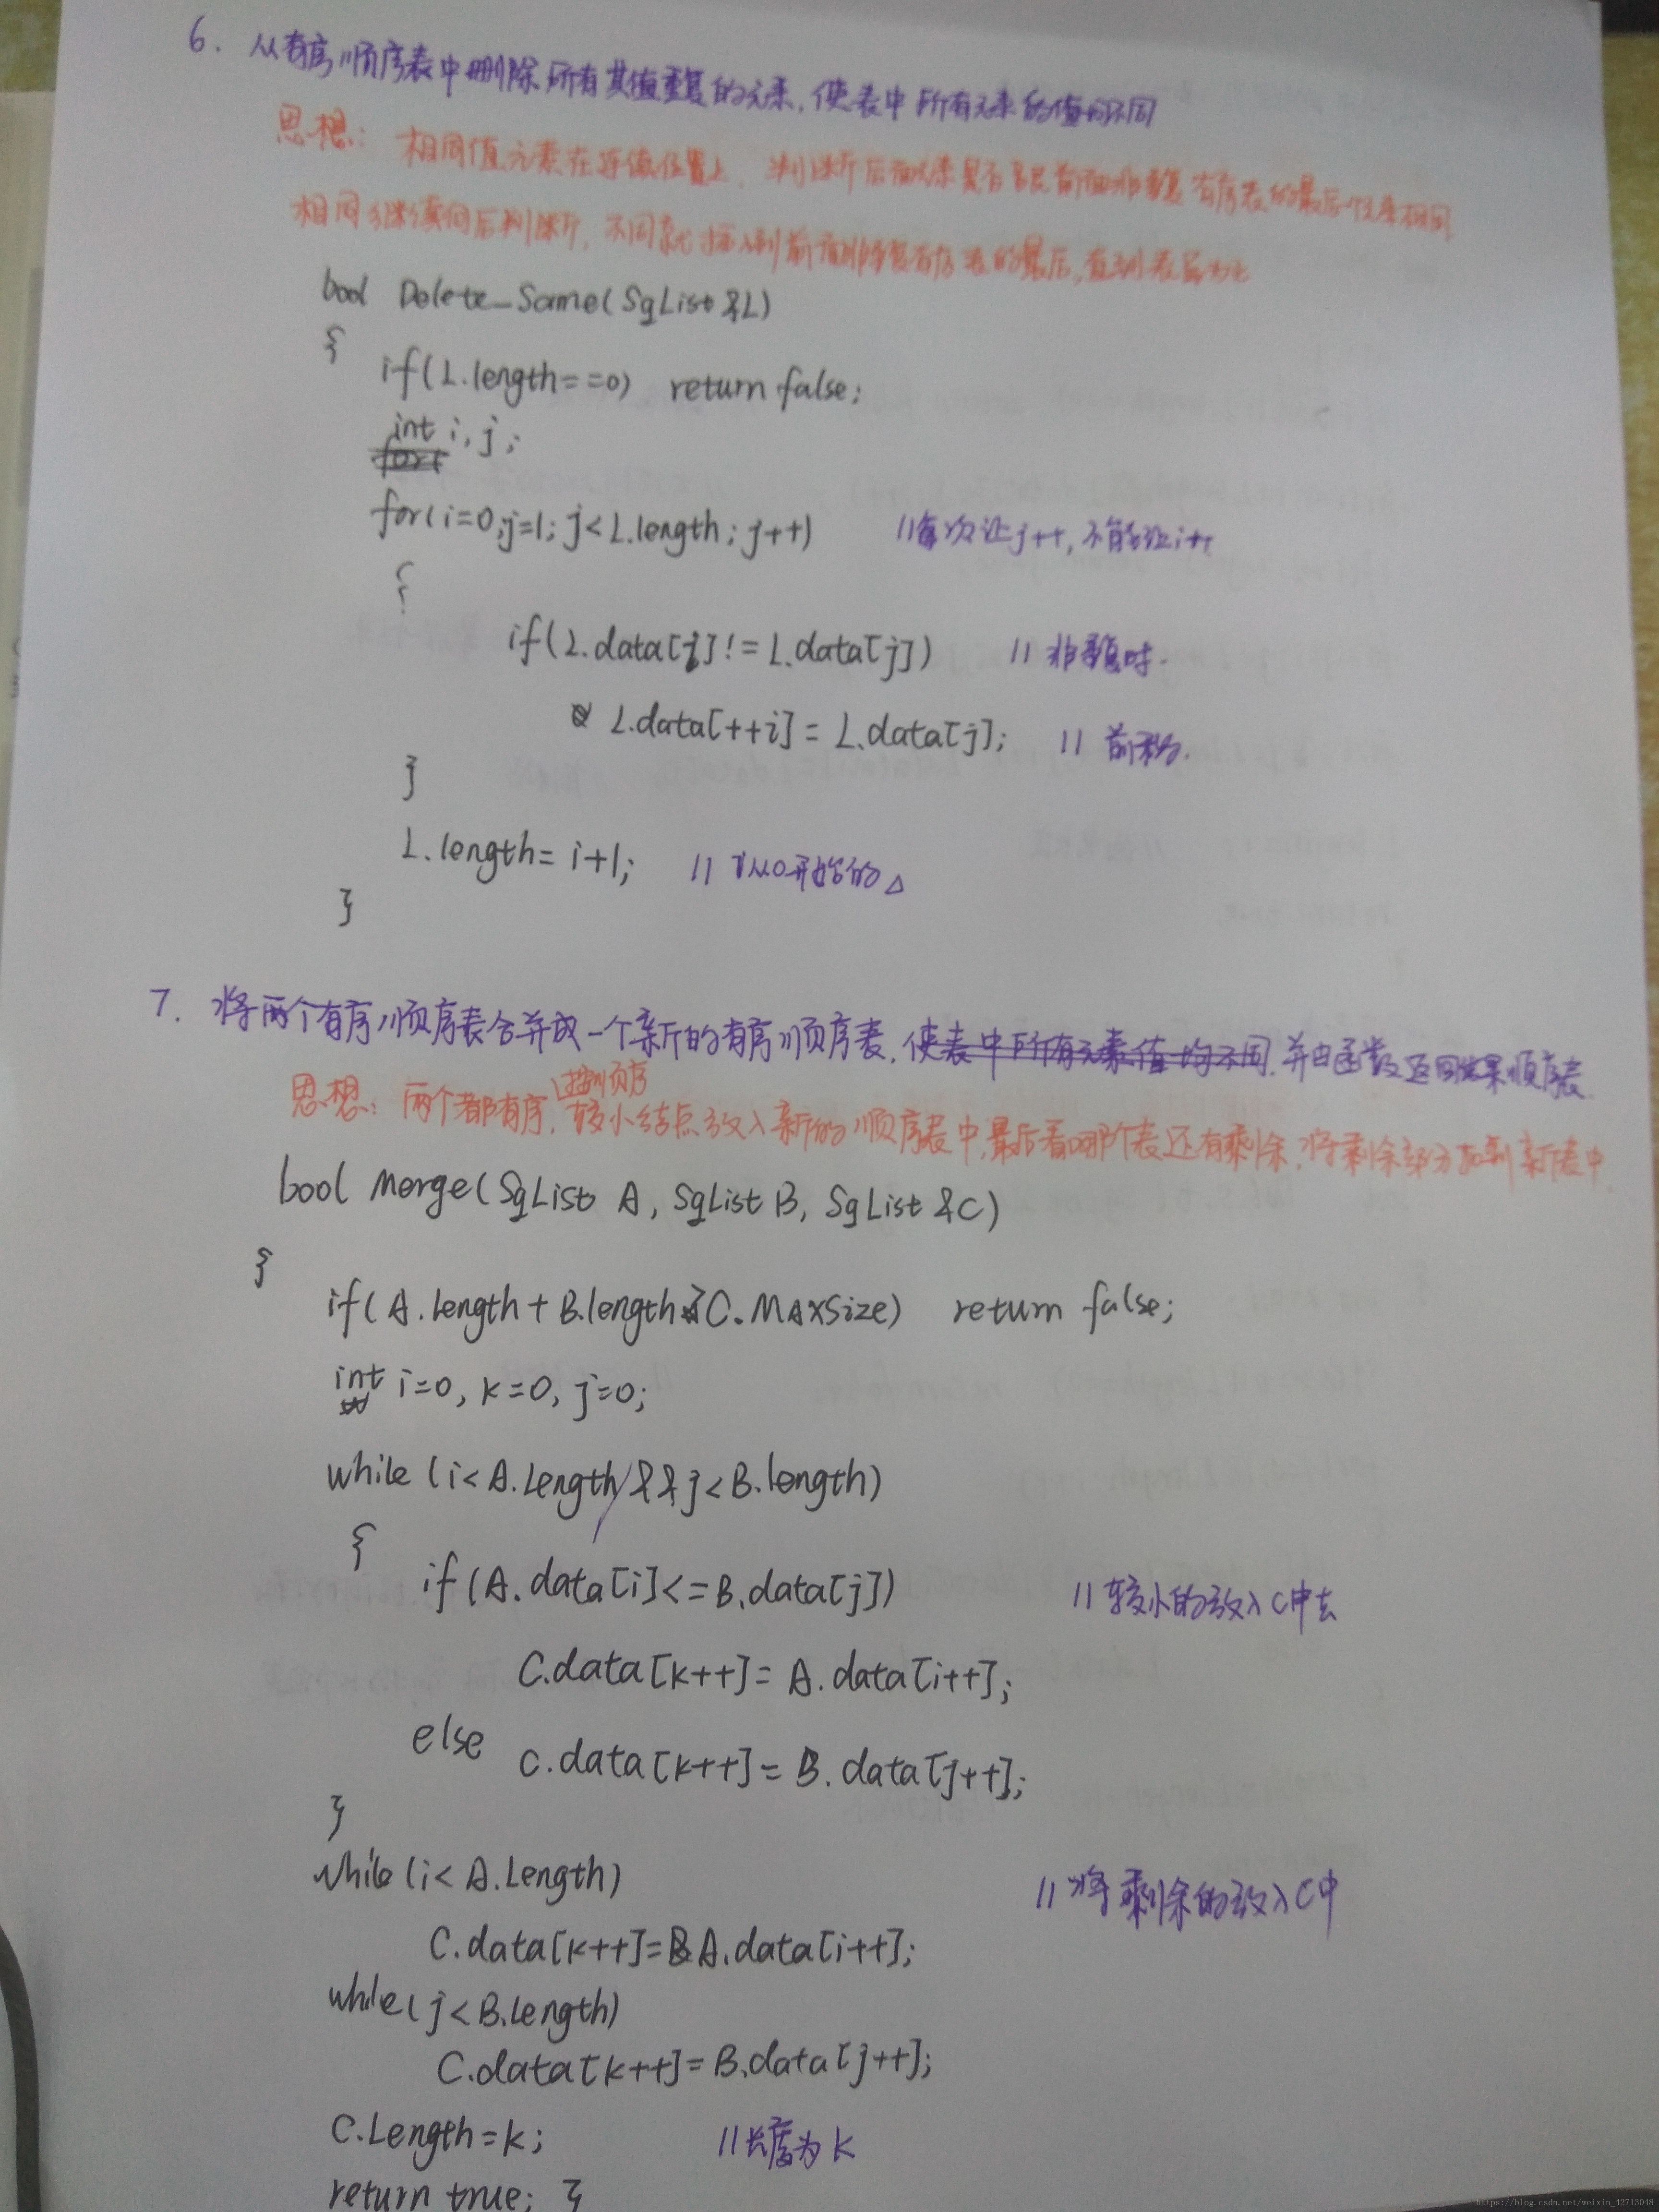 6. 从有序顺序表中删除所有其值重复的元素,使表中所有元素的值均不同
思想: 相同值元素在连续位置上,判断后面元素是否与前面非重复有序表的最后一个元素相同
相同继续向后判断,不同就插入到前面非重复有序表的最后,直到表尾为止
bool Delete_Same(SqList &L)
{
if(L.length==0) return false;
int i,j;
for(i=0,j=1; j<L.length; j++) //每次让j++,不能让i++
{
if(L.data[i]!=L.data[j]) //非重复时.
L.data[++i]=L.data[j]; //前移.
}
L.length=i+1; //i从0开始的△
}
7. 将两个有序顺序表合并成一个新的有序顺序表,使表中所有元素值均不同.并由函数返回结果顺序表.
思想: 两个都有序,按顺序较小结点放入新的顺序表中,最后看哪个表还有剩余,将剩余部分加到新表中.
bool Merge(SqList A, SqList B, SqList &C)
{
if(A.length+B.length C.MAXSize) return false;
int i=0, k=0, j=0;
while (i<A.Length && j<B.length)
{
if(A.data[i]<=B.data[j]) //较小的放入C中去
C.data[k++]=A.data[i++];
else C.data[k++]=B.data[j++];
}
while(i<A.Length) //将剩余的放入C中
C.data[k++]=A.data[i++];
while(j<B.Length)
C.data[k++]=B.data[j++];
C.Length=k; //长度为k
return true; }
https://blog.csdn.net/weixin_42713048